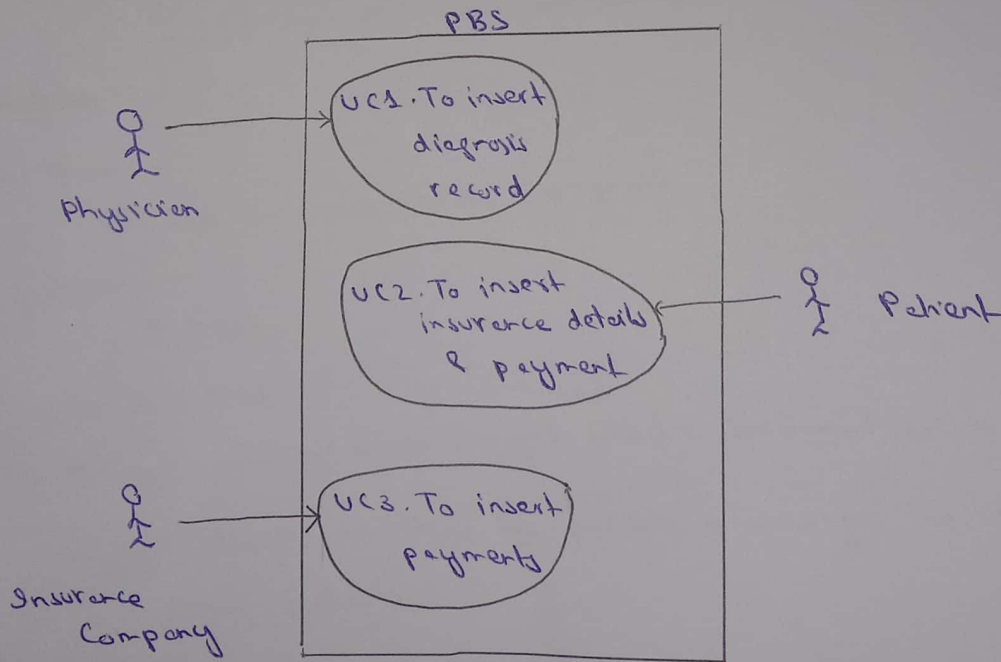 PBS
UC1. To insert
diagnosis
record
Physician
UC2. To insert
insurance details
& payment
Patient
UC3. To insert
payments
Insurance
Company